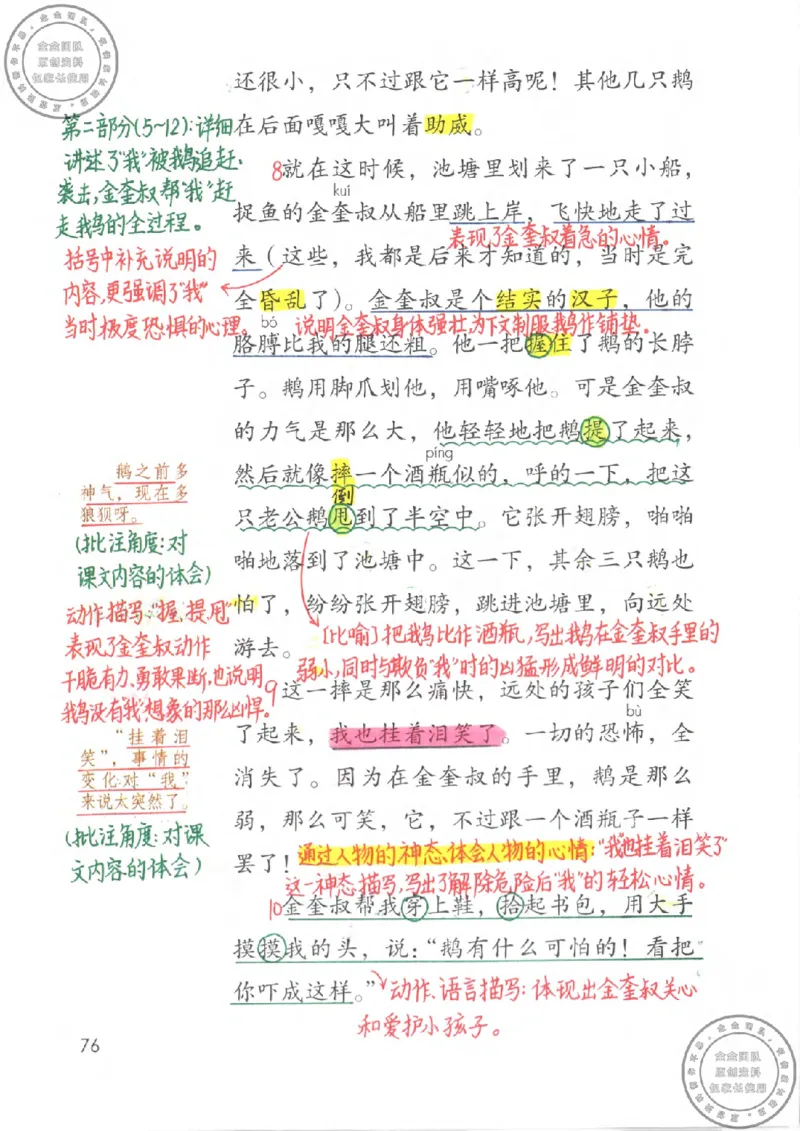 还很小，只不过跟它一样高呢！其他几只鹅
第二部分(5~12)：详细
在后面嘎嘎大叫着助威。
讲述了“我”被鹅追赶、
袭击，金奎叔帮“我”赶
走鹅的全过程。
8就在这时候，池塘里划来了一只小船，
kuí
捉鱼的金奎叔从船里跳上岸，飞快地走了过
表现了金奎叔着急的心情。
来（这些，我都是后来才知道的，当时是完
括号中补充说明的
内容，更强调了“我”
当时极度恐惧的心理。
全昏乱了）。金奎叔是个结实的汉子，他的
bó
说明金奎叔身体强壮，为下文制服鹅作铺垫。
胳膊比我的腿还粗。他一把握住了鹅的长脖
子。鹅用脚爪划他，用嘴啄他。可是金奎叔
的力气是那么大，他轻轻地把鹅提了起来，
píng
然后就像摔一个酒瓶似的，呼的一下，把这
倒
只老公鹅甩到了半空中。它张开翅膀，啪啪
鹅之前多
神气，现在多
狼狈呀。
(批注角度：对
课文内容的体会)
啪地落到了池塘中。这一下，其余三只鹅也
怕了，纷纷张开翅膀，跳进池塘里，向远处
动作描写：“握、提、甩”
表现了金奎叔动作
干脆有力、勇敢果断，也说明
鹅没有“我”想象的那么凶悍。
游去。
[比喻]把鹅比作酒瓶，写出鹅在金奎叔手里的
弱小，同时与欺负“我”时的凶猛形成鲜明的对比。
9这一摔是那么痛快，远处的孩子们全笑
bù
了起来，我也挂着泪笑了。一切的恐怖，全
“挂着泪
笑”，事情的
变化对“我”
来说太突然了。
(批注角度：对课
文内容的体会)
消失了。因为在金奎叔的手里，鹅是那么
弱，那么可笑，它，不过跟一个酒瓶子一样
罢了！
通过人物的神态，体会人物的心情：“我也挂着泪笑了”
这一神态描写，写出了解除危险后“我”的轻松心情。
10金奎叔帮我穿上鞋，拾起书包，用大手
摸摸我的头，说：“鹅有什么可怕的！看把
你吓成这样。”
动作、语言描写：体现出金奎叔关心
和爱护小孩子。
76